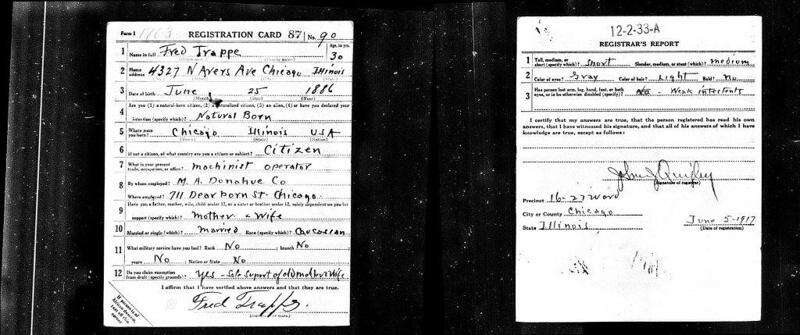 Form 1 REGISTRATION CARD 87 No. 90
1 Name in full Fred Trappe Age, in yrs. 30
2 Home address 4327 N Avers Ave Chicago Illinois
3 Date of birth June 25 1886
(Month) (Day) (Year)
Are you (1) a natural-born citizen, (2) a naturalized citizen, (3) an alien, (4) or have you declared your
4 intention (specify which)? Natural Born
5 Where were you born? Chicago Illinois USA
6 If not a citizen, of what country are you a citizen or subject? Citizen
7 What is your present trade, occupation, or office? machinist operator
8 By whom employed? M. A. Donahue Co
Where employed? 711 Dearborn St Chicago
Have you a father, mother, wife, child under 12, or a sister or brother under 12, solely dependent on you for
9 support (specify which)? Mother & Wife
10 Married or single (which)? married Race (specify which)? Caucasian
11 What military service have you had? Rank No branch No
years No Nation or State No
12 Do you claim exemption from draft (specify grounds)? Yes - Sole Suport of old mother & Wife
I affirm that I have verified above answers and that they are true.
Fred Trappe
12-2-33-A
REGISTRAR'S REPORT
1 Tall, medium, or short (specify which)? Short Slender, medium, or stout (which)? medium
2 Color of eyes? Gray Color of hair? Light Bald? No
3 Has person lost arm, leg, hand, foot, or both eyes, or is he otherwise disabled (specify)? No - Weak intestents
I certify that my answers are true, that the person registered has read his own
answers, that I have witnessed his signature, and that all of his answers of which I have
knowledge are true, except as follows:
John J Quigley
(Signature of registrar)
Precinct 16-27 Ward
City or County Chicago
State Illinois June 5-1917
(Date of registration)